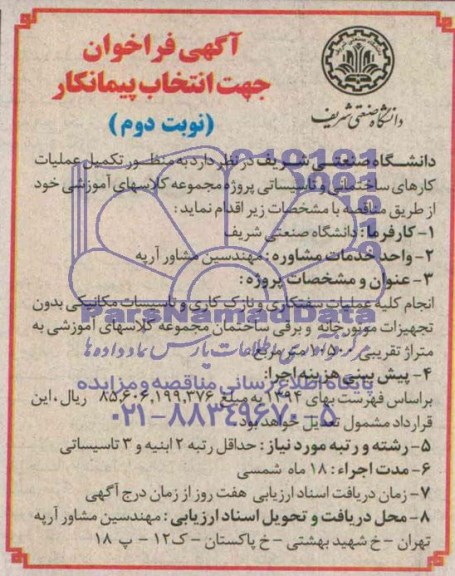 آگهی فراخوان
جهت انتخاب پیمانکار
(نوبت دوم)
دانشگاه صنعتی شریف
دانشگاه صنعتی شریف در نظر دارد به منظور تکمیل عملیات
کارهای ساختمانی و تاسیساتی پروژه مجموعه کلاسهای آموزشی خود
از طریق مناقصه با مشخصات زیر اقدام نماید:
۱- کارفرما: دانشگاه صنعتی شریف
۲- واحد خدمات مشاوره: مهندسین مشاور آریه
۳- عنوان و مشخصات پروژه:
انجام کلیه عملیات سفتکاری و نازک کاری و تاسیسات مکانیکی بدون
تجهیزات موتورخانه و برقی ساختمان مجموعه کلاسهای آموزشی به
متراژ تقریبی متر مربع
۴- پیش بینی هزینه اجرا:
براساس فهرست بهای ۱۳۹۴ به مبلغ ۸۵,۶۰۶,۱۹۹,۳۷۶ ریال، این
قرارداد مشمول تعدیل خواهد بود.
۵- رشته و رتبه مورد نیاز: حداقل رتبه ۲ ابنیه و ۳ تاسیساتی
۶- مدت اجراء: ۱۸ ماه شمسی
۷- زمان دریافت اسناد ارزیابی هفت روز از زمان درج آگهی
۸- محل دریافت و تحویل اسناد ارزیابی: مهندسین مشاور آریه
تهران - خ شهید بهشتی - خ پاکستان - ک۱۲ - پ ۱۸
ParsNamadData
مرکز آوری اطلاعات پارس نماد داده ها
پایگاه اطلاع رسانی مناقصه و مزایده
۰۲۱-۸۸۳۴۹۶۷۰-۵